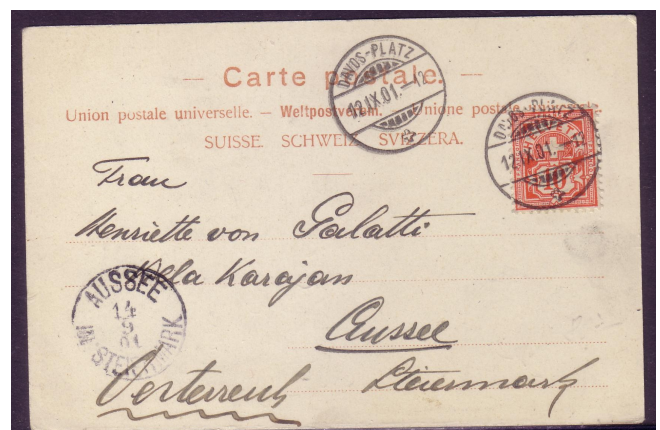 — Carte postale. —
Union postale universelle. — Weltpostverein. — Unione postale
SUISSE. SCHWEIZ. SVIZZERA.
DAVOS-PLATZ
12.IX.01.–12
DAVOS-PLATZ
12.IX.01.–12
10
Frau
Henriette von Galatti
Karajan
Aussee
Steiermark
Oesterreich
AUSSEE
14
9
01
IN STEIERMARK